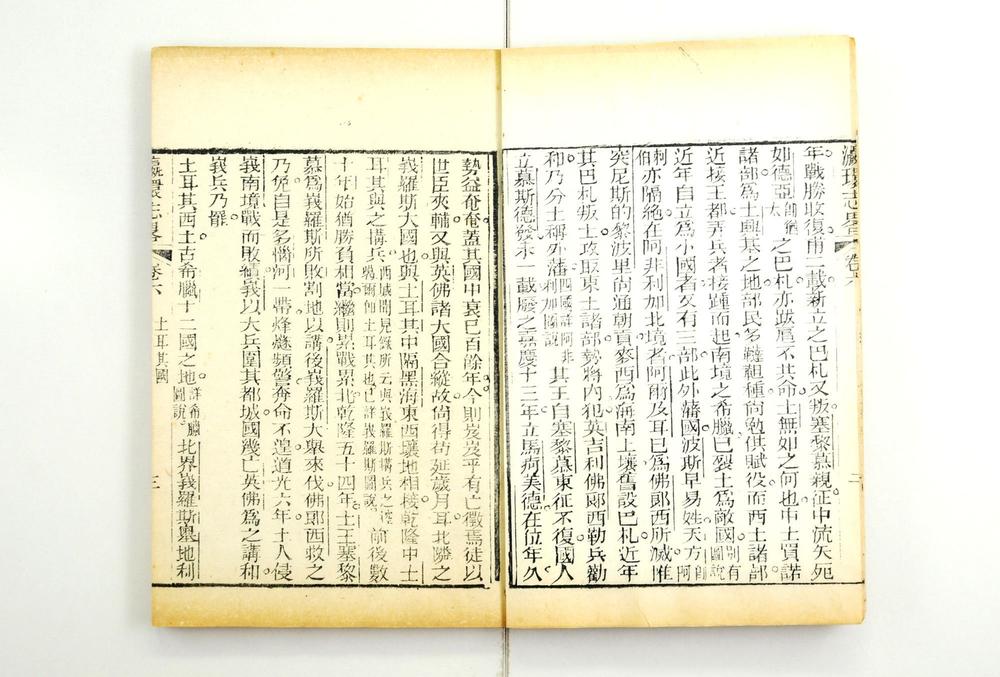 瀛環志畧 卷六 二
年戰勝收復甫二載新立之巴札又叛塞黎慕親征中流矢死
如德亞卽猶太之巴札亦跋扈不共命土無如之何也中土買諾
諸部爲土興基之地部民名韃韃種尙勉供賦役而西土諸部
近接王都弄兵者接踵而起南境之希臘已裂土爲敵國別有圖說
近年自立爲小國者又有三部此外藩國波斯早易姓天方卽阿
剌伯亦隔絶在阿非利加北境者阿爾及耳已爲佛郎西所滅惟
突尼斯的黎波里尙通朝貢麥西爲海南上壤舊設巴札近年
其巴札叛土攻取東土諸部勢將內犯英吉利佛郎西勒兵勸
和乃分土稱外藩四國詳阿非利加圖說其王自塞黎慕東征不復國人
立慕斯德發未一載廢之嘉慶十三年立馬疴美德在位年久
勢益奄奄蓋其國中衰已百餘年今則岌岌乎有亡徵焉徒以
世臣夾輔又與英佛諸大國合縱故尙得苟延歲月耳北隣之
峩羅斯大國也與土耳其中隔黑海東西壤地相接乾隆中土
耳其與之搆兵西域聞見錄所云與峩羅斯搆兵之控噶爾卽土耳其也已詳峩羅斯圖說前後數
十年始猶勝負相當繼則累戰累北乾隆五十四年土王塞黎
慕爲峩羅斯所敗割地以講後峩羅斯大舉來伐佛郎西救之
乃免自是多惱河一帶烽燧頻警奔命不遑道光六年土人侵
峩南境戰而敗績峩以大兵圍其都城國幾亡英佛爲之講和
峩兵乃罷
土耳其西土古希臘十二國之地詳希臘圖說北界峩羅斯墺地利
瀛環志畧 卷六 土耳其國 三